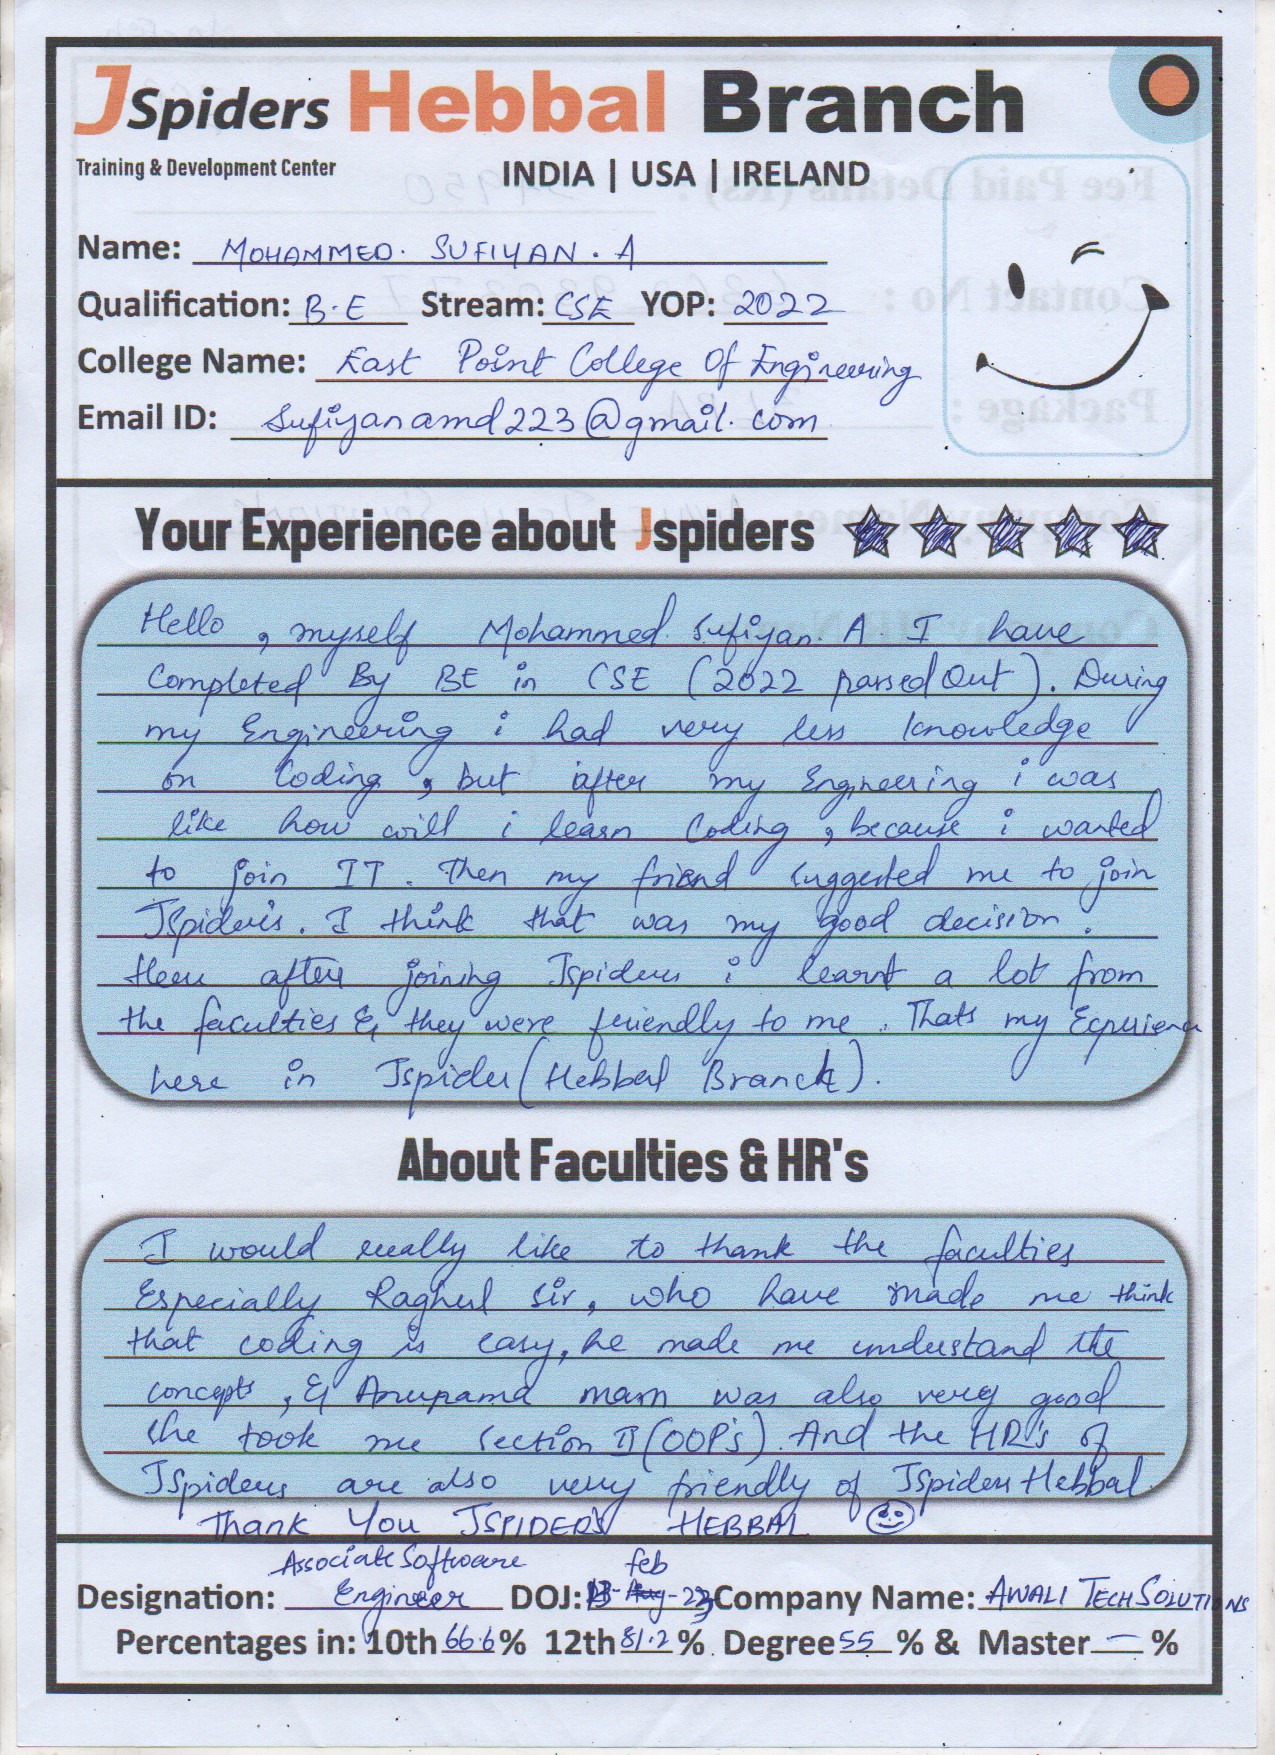 JSpiders Hebbal Branch
Training & Development Center
INDIA | USA | IRELAND
Name: MOHAMMED. SUFIYAN. A
Qualification: B.E Stream: CSE YOP: 2022
College Name: East Point College Of Engineering
Email ID: sufiyanamd223@gmail.com
Your Experience about Jspiders
Hello, myself Mohammed. Sufiyan. A. I have
Completed By BE in CSE (2022 passed Out). During
my Engineering i had very less knowledge
on Coding, but after my Engineering i was
like how will i learn Coding, because i wanted
to join IT. Then my friend suggested me to join
JSpiders. I think that was my good decision.
then after joining Jspiders i learnt a lot from
the faculties & they were friendly to me. Thats my
here in Jspider (Hebbal Branch).
About Faculties & HR's
I would really like to thank the faculties
Especially Raghul Sir, who have made me think
that coding is easy, he made me understand the
concepts, & Anupama mam was also very good
She took me section II (OOP's). And the HR's of
JSpiders are also very friendly of JSpiders Hebbal.
THANK YOU JSPIDER'S HEBBAL
Associate Software feb
Designation: Engineer DOJ: Company Name: AWALI TECH SOLUTIONS
Percentages in: 10th 66.6% 12th 81.2% Degree 55 % & Master — %